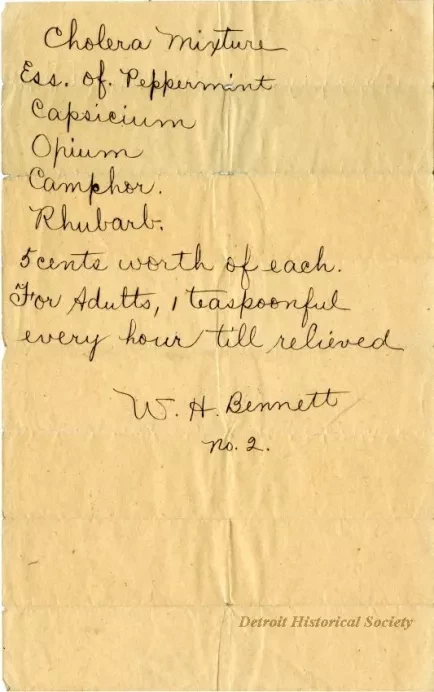 Cholera Mixture
Ess. of. Peppermint
Capsicium
Opium
Camphor.
Rhubarb.
5 cents worth of each.
For Adults, 1 teaspoonful
every hour till relieved
W. H. Bennett
No. 2.
Detroit Historical Society